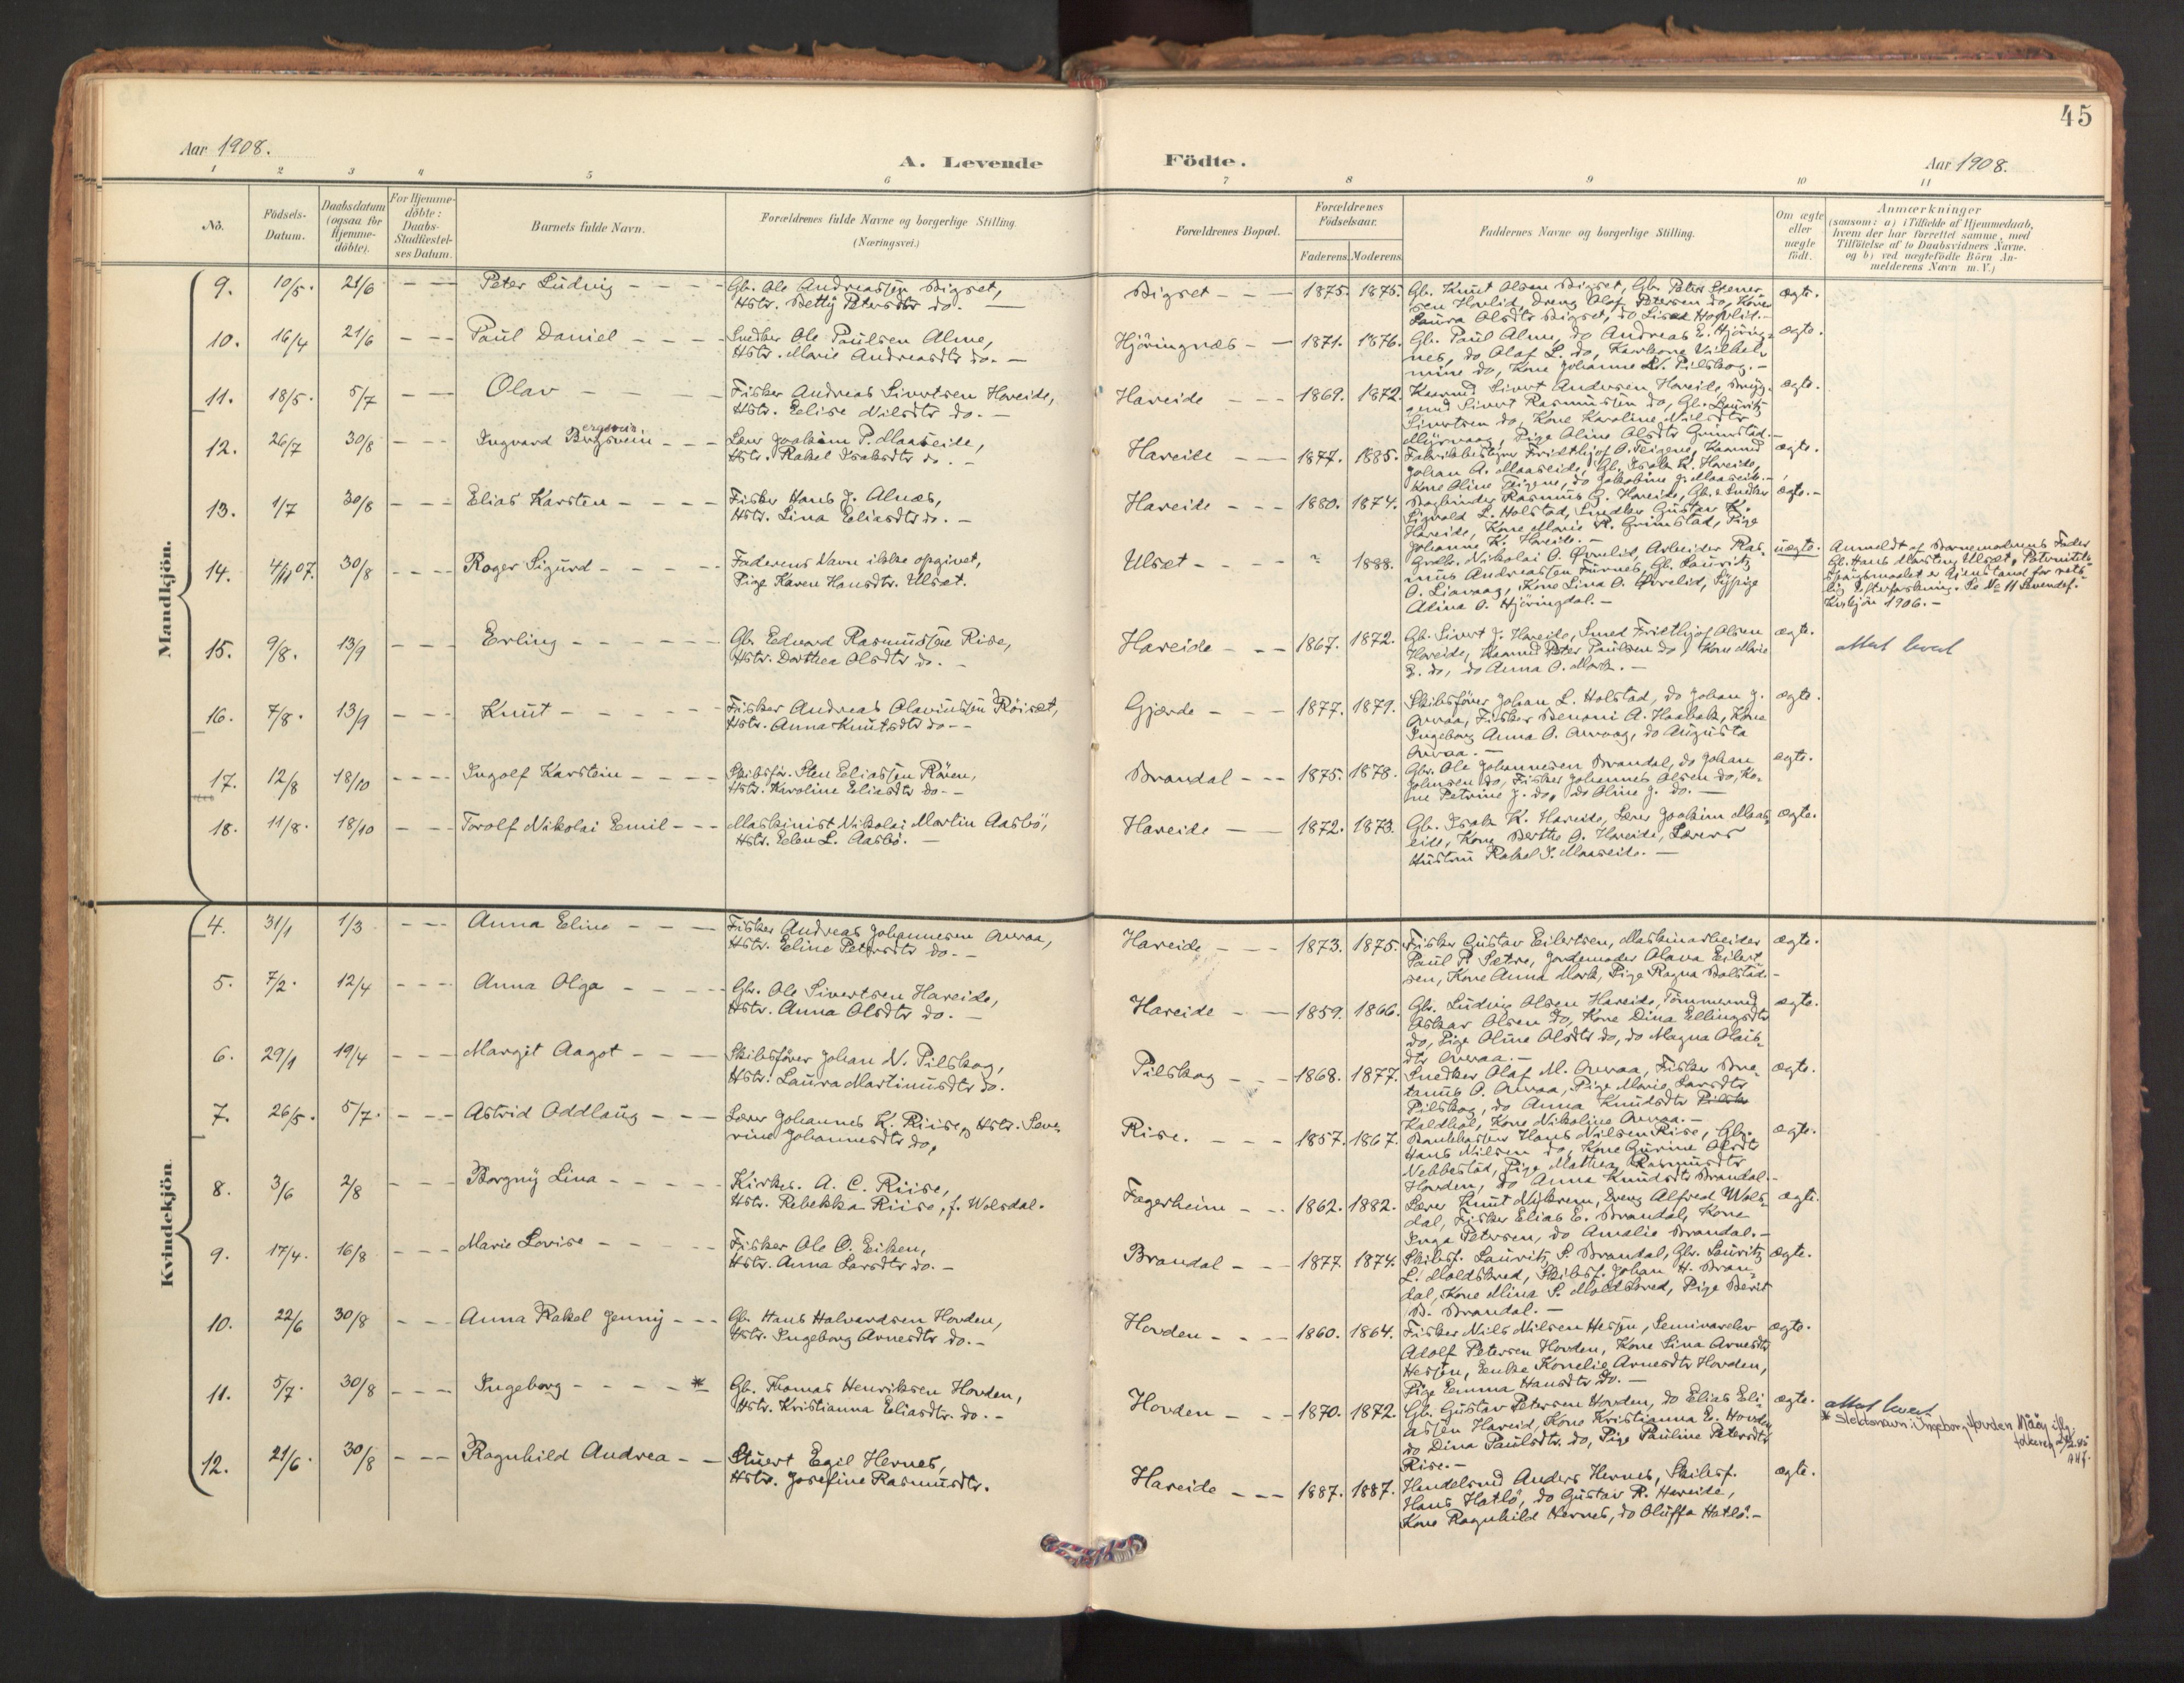 45
Aar 1908.
A. Levende Födte.
Aar 1908.
1 2 3 4 5 6 7 8 9 10 11
No.
Födsels-Datum.
Daabsdatum (ogsaa for Hjemme-döbte).
For Hjemme-döbte: Daabs-Stadfæstel-ses Datum.
Barnets fulde Navn.
Forældrenes fulde Navne og borgerlige Stilling.
(Næringsvei.)
Forældrenes Bopæl.
Forældrenes Födselsaar.
Faderens. Moderens.
Faddernes Navne og borgerlige Stilling.
Om ægte eller uægte födt.
Anmærkninger
(saasom: a) i Tilfælde af Hjemmedaab,
hvem der har forrettet samme, med
Tilföielse af to Daabsvidners Navne.
og b) ved uægtefödte Börn An-
melderens Navn m. V.)
Mandkjön.
9. 10/5. 21/6 Peter Ludvig
Gb. Ole Andreassen Bigset,
Hstr. Betty Petersdtr do.
Bigset 1875. 1875.
Gb. Knut Olsen Bigset, Gb. Peter Stener-
sen Hovlid, Dreng Olaf Petersen do, Kone
Laura Olsdtr Bigset, do Hovlid.
ægte.
10. 16/4 21/6 Paul Daniel
Snedker Ole Paulsen Alme,
Hstr. Marie Andreasdtr do.
Hjöringnæs 1871. 1876.
Gb. Paul Alme, do Andreas E. Hjöring-
nes, do Olaf L. do, Vilhel-
mine do, Kone Johanne Pilskog.
ægte.
11. 18/5. 5/7 Olav
Fisker Andreas Sivertsen Hareide,
Hstr. Elise Nilsdtr do.
Hareide 1869. 1872.
Kaarmd Sivert Andersen Hareide,
Sivert Rasmussen do, Gb. Lauritz
Sivertsen do, Kone Karoline Nilsdtr
Pige Oline Olsdtr Grimstad.
ægte.
12. 26/7 30/8 Ingvard Bergsvein
ergsvein
Lærer Joakim P. Maaseide,
Hstr. Rakel Isaksdtr do.
Hareide 1877. 1885.
Fabrikbestyrer Fridthjof O. Teigene, Kaarmd
Johan A. Maaseide, Gb. Isak K. Hareide,
Kone Oline Teigene, do Jakobine J. Maaseide.
ægte.
13. 1/7 30/8 Elias Karsten
Fisker Hans J. Alnæs,
Hstr. Lina Eliasdtr do.
Hareide 1880. 1874.
Bogbinder Rasmus G. Hareide, Gb. & Snedker
Sigvald L. Holstad, Snedker Gustav K.
Hareide, Kone Marie R. Grimstad, Pige
Johanne K. Hareide.
ægte.
14. 4/11 07. 30/8 Roger Sigurd
Faderens Navn ikke opgivet,
Pige Karen Hansdtr. Ulset.
Ulset ? 1888.
Nikolai O. Øvrelid, Arbeider Ras-
mus Andreassen Furnes, Gb. Lauritz
O. Liavaag, Kone Lina O. Øvrelid, Sypige
Adina O. Hjöringdal.
uægte.
Anmeldt af Barnemoderens Fader
Gb. Hans Ulset, Paternitets-
spörgsmaalet er Gjenstand for rets-
lig Efterforskning. Se No 11 Levendef.
Kvkjön 1906.
15. 9/8. 13/9 Erling
Gb. Edvard Rasmussen Rise,
Hstr. Dorthea Olsdtr do.
Hareide 1867. 1872.
Gb. Sivert J. Hareide, Smed Fridthjof Olsen
Hareide, Kaarmd Peter Paulsen do, Kone Marie
E. do, do Anna O. Mork.
ægte.
Attest levert
16. 7/8. 13/9 Knut
Fisker Andreas Olavinssen Röiset,
Hstr. Anna Knutsdtr do
Gjærde 1877. 1879.
Skibsförer Johan L. Holstad, do Johan J.
Overaa, Fisker Benoni A. Haabak, Kone
Ingeborg Anna O. Overaag, do Augusta
Overaa.
ægte.
17. 12/8 18/10 Ingolf Karstein
Skibsför. Sten Eliassen Rören,
Hstr. Karoline Eliasdtr do
Brandal 1875. 1878.
Gb. Ole Johannesen Brandal, do Johan
Johnsen do, Fisker Johannes Olsen do, Ko-
ne Petrine J. do, do Oline J. do.
ægte.
18. 11/8. 18/10 Torolf Nikolai Emil
Maskinist Nikolai Martin Aasbö,
Hstr. Elen L. Aasbö.
Hareide 1872. 1873.
Gb. Isak K. Hareide, Lærer Joakim Maas-
eide, Kone Berthe G. Hareide, Lærers
Hustru Rakel I. Maaseide.
ægte.
Kvindekjön.
4. 31/1 1/3 Anna Eline
Fisker Andreas Johannesen Overaa,
Hstr. Eline Petersdtr do.
Hareide 1873. 1875.
Fisker Gustav Eilertsen, Maskinarbeider
Paul P. Sætre, Jordemoder Olava Eilert-
sen, Kone Anna Mork, Pige Ragna Balstad.
ægte.
5. 7/2. 12/4 Anna Olga
Gb. Ole Sivertsen Hareide,
Hstr. Anna Olsdtr do.
Hareide 1859. 1866.
Gb. Ludvig Olsen Hareide, Tömmermd
Oskar Olsen do, Kone Dina Ellingsdtr
do, Pige Oline Olsdtr do, do Magna Olais-
dtr Overaa.
ægte.
6. 29/1 19/4 Margit Aagot
Skibsförer Johan N. Pilskog,
Hstr. Laura Martinusdtr do.
Pilskog 1868. 1877.
Snedker Olaf M. Overaa, Fisker
O. Overaa, Pige Marie Larsdtr
Pilskog, do Anna Knudsdtr
Kaldhol, Kone Nikoline Overaa.
ægte.
7. 26/5. 5/7. Astrid Oddlaug
Lærer Johannes K. Riise, Hstr. Seve-
rine Johannesdtr do,
Rise. 1857. 1867.
Bankkasserer Hans Nilsen Rise, Gb.
Hans Nilsen do, Kone Gurine Olsdtr
Nebbestad, Pige Mathea Rasmusdtr
Hovden, do Anna Knudsdtr Brandal.
ægte.
8. 3/6 2/8 Borgny Lina
Kirkes. A. C. Riise,
Hstr. Rebekka Riise, f. Wolsdal.
Fagerheim 1862. 1882.
Lærer Knut Myhren, Dreng Alfred Wols-
dal, Fisker Elias E. Brandal, Kone
Inga Petersen, do Amalie Brandal.
ægte.
9. 17/4. 16/8 Marie Lovise
Fisker Ole O. Eiken,
Hstr. Anna Larsdtr do.
Brandal 1877. 1874.
Skibsf. Lauritz S. Brandal, Gb. Lauritz
L. Moldskred, Skibsf. Johan H. Bran-
dal, Kone Mina S. Moldskred, Pige Berit
B. Brandal.
ægte.
10. 22/6 30/8 Anna Rakel Jenny
Gb. Hans Halvardsen Hovden,
Hstr. Ingeborg Arnesdtr do.
Hovden 1860. 1864.
Fisker Nils Nilsen Hessen, Seminarelev
Adolf Petersen Hovden, Kone Lina Arnesdtr
Hessen, Enke Kornelie Arnesdtr Hovden,
Pige Emma Hansdtr do.
ægte.
11. 5/7. 30/8 Ingeborg *
Gb. Thomas Henriksen Hovden,
Hstr. Kristianna Eliasdtr. do.
Hovden 1870. 1872.
Gb. Gustav Petersen Hovden, do Elias Eli-
assen Hareid, Kone Kristianna E. Hovden
do Dina Paulsdtr. do, Pige Pauline Petersdtr
Rise.
ægte.
attest levert
* Slektsnavn: Ingeborg Hovden Måøy
12. 21/6. 30/8 Ragnhild Andrea
Stuert Egil Hernes,
Hstr. Josefine Rasmusdtr.
Hareide 1887. 1887.
Handelsmd Anders Hernes, Skibsf.
Hans Hatlö, do Gustav R. Hareide,
Kone Ragnhild Hernes, do Oluffa Hatlö.
ægte.